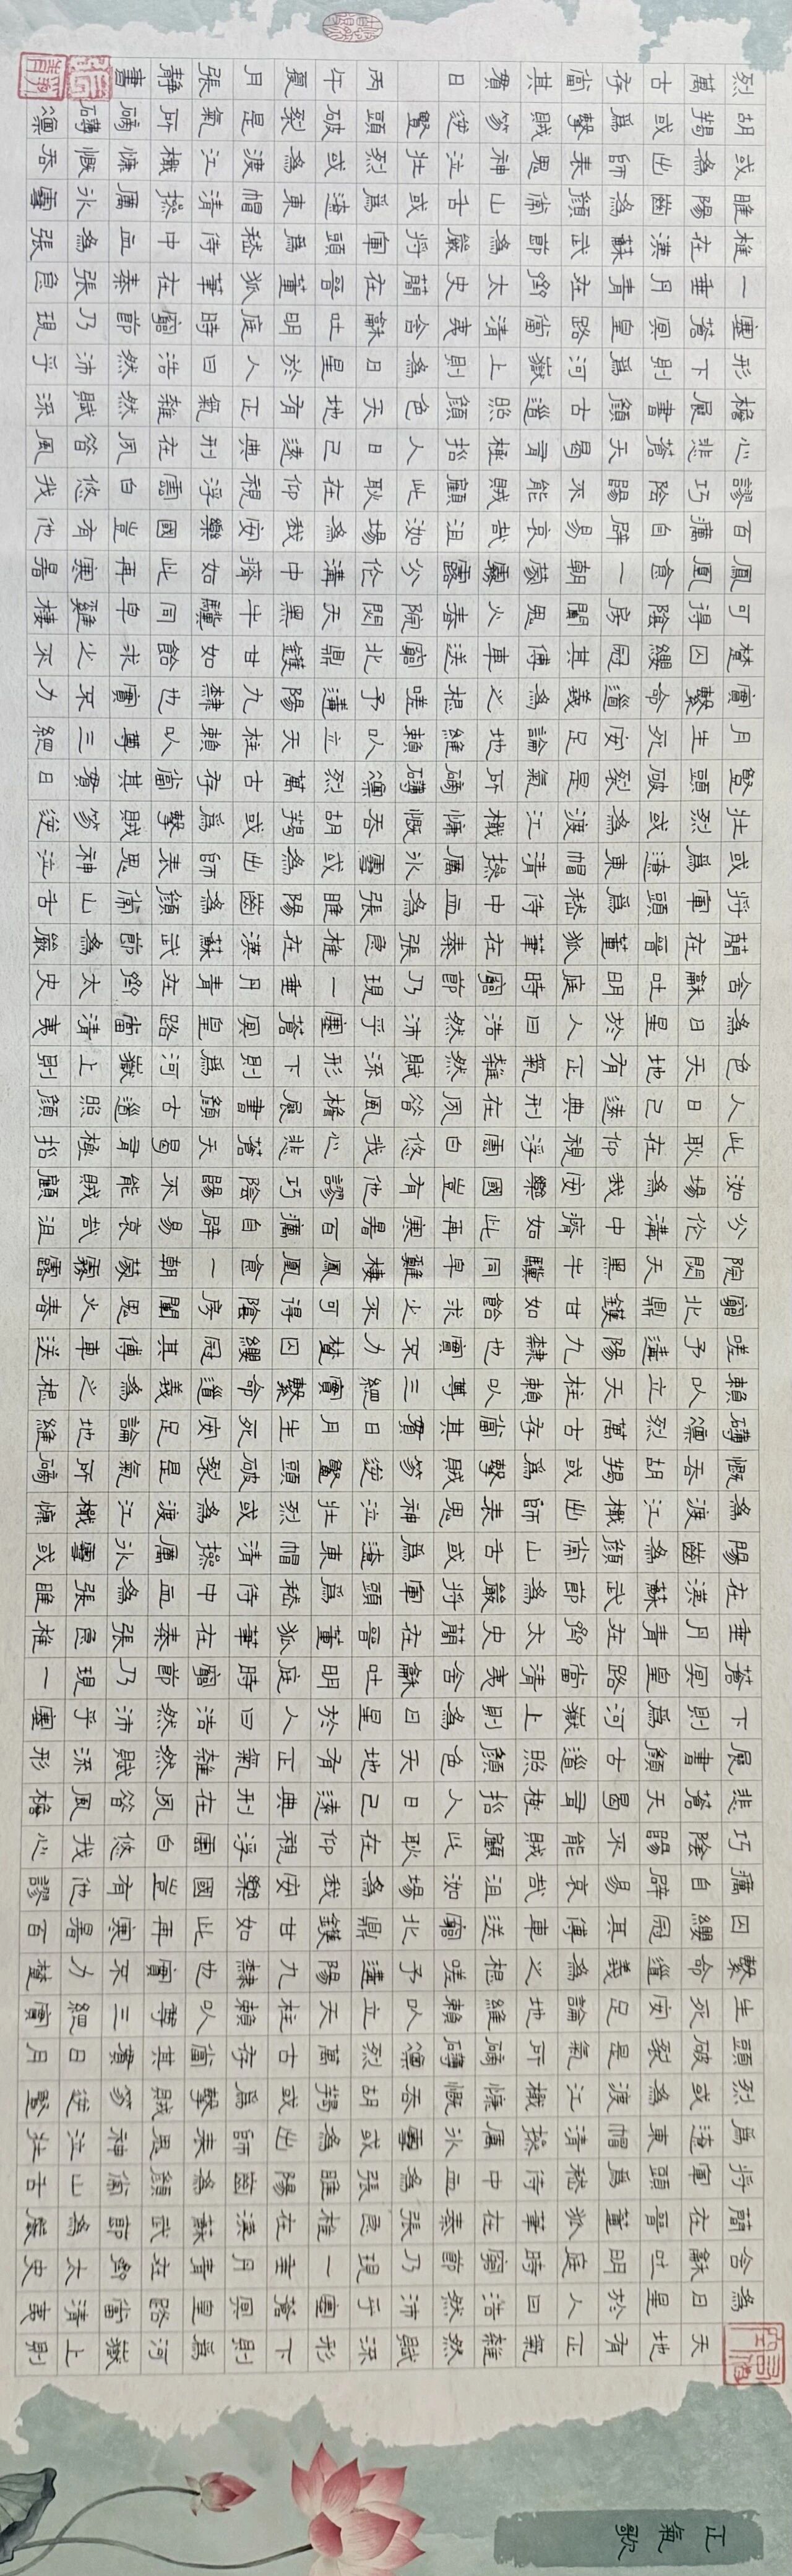 正氣歌
天地有正氣雜然賦流形下則為河嶽上則
為日星於人曰浩然沛乎塞蒼冥皇路當清夷
含和吐明庭時窮節乃現一垂丹青在齊太史
簡在晉董狐筆在秦張良椎在漢蘇武節為嚴
將軍頭為嵇侍中血為張睢陽齒為顏常山舌
為遼東帽清操厲冰雪或為出師表鬼神泣壯
烈或為渡江楫慷慨吞胡羯或為擊賊笏逆豎
頭破裂是氣所磅礴凜烈萬古存當其貫日月
生死安足論地維賴以立天柱賴以尊三綱實
繫命道義為之根嗟予遘陽九隸也實不力楚
囚纓冠其傅車送窮北鼎鑊甘如此再寒暑百
沴自辟易哀哉沮洳場為我安樂國豈有他繆
巧陰陽不能賊顧此耿在仰視浮雲白悠我心
悲蒼天曷有極哲人日已遠典刑在夙昔風檐
展書顏古道照顏色天地有正氣雜然賦流形
下則為河嶽上則為日星於人曰浩然沛乎塞
蒼冥皇路當清夷含和吐明庭時窮節乃現一
垂丹青在齊太史簡在晉董狐筆在秦張良椎
在漢蘇武節為嚴將軍頭為嵇侍中血為張睢
陽齒為顏常山舌或為遼東帽清操厲冰雪或
為渡江楫出師表鬼神泣壯烈或為渡江楫慷
慨吞胡羯或為擊賊笏逆豎頭破裂是氣所磅
礴凜烈萬古存當其貫日月生死安足論地維
賴以立天柱賴以尊三綱實繫命道義為之根
嗟予遘陽九隸也實不力楚囚纓冠其傅車送
窮北鼎鑊甘如飴求之不可得陰房闃鬼火春
院閟天黑牛驥同皁雞棲鳳凰食一朝蒙霧露
分作溝中瘠如此再寒暑百沴自辟易哀哉沮
洳場為我安樂國豈有他繆巧陰陽不能賊顧
此耿在仰視浮雲白悠我心悲蒼天曷有極哲
人日已遠典刑在夙昔風檐展書顏古道照顏
色天地有正氣雜然賦流形下則為河嶽上則
為日星於人曰浩然沛乎塞蒼冥皇路當清夷
含和吐明庭時窮節乃現一垂丹青在齊太史
簡在晉董狐筆在秦張良椎在漢蘇武節為嚴
將軍頭為嵇侍中血為張睢陽齒為顏常山舌
或為遼東帽清操厲冰雪或為出師表鬼神泣
壯烈或為渡江楫慷慨吞胡羯或為擊賊笏逆
豎頭破裂是氣所磅礴凜烈萬古存當其貫日
月生死安足論地維賴以立天柱賴以尊三綱
實繫命道義為之根嗟予遘陽九隸也實不力
楚囚纓冠其傅車送窮北鼎鑊甘如飴求之不
可得陰房闃鬼火春院閟天黑牛驥同皁雞棲
鳳凰食一朝蒙霧露分作溝中瘠如此再寒暑
百沴自辟易哀哉沮洳場為我安樂國豈有他
繆巧陰陽不能賊顧此耿在仰視浮雲白悠我
心悲蒼天曷有極哲人日已遠典刑在夙昔風
檐展書顏古道照顏色天地有正氣雜然賦流
形下則為河嶽上則為日星於人曰浩然沛乎
塞蒼冥皇路當清夷含和吐明庭時窮節乃現
一垂丹青在齊太史簡在晉董狐筆在秦張良
椎在漢蘇武節為嚴將軍頭為嵇侍中血為張
睢陽齒為顏常山舌或為遼東帽清操厲冰雪
或為出師表鬼神泣壯烈或為渡江楫慷慨吞
胡羯或為擊賊笏逆豎頭破裂是氣所磅礴凜
烈萬古存當其貫日 丙午夏月張靜書